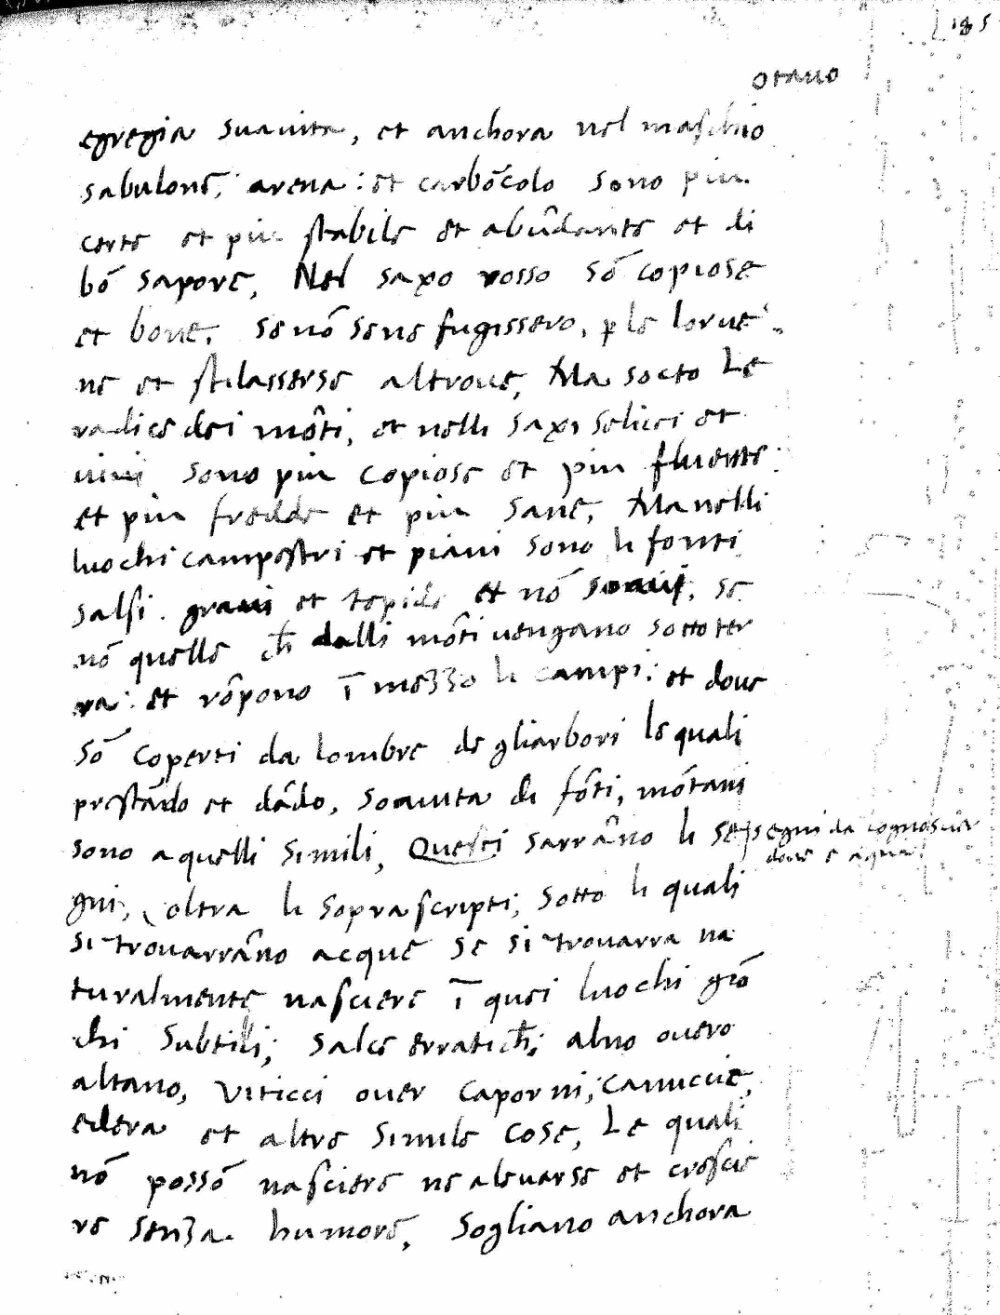 185
otauo
egregia suauita, et anchora nel maschio
sabulone, arena: et carbōcolo sono piu
certe et piu stabile et abūdante et di
bō sapore, Nel saxo rosso sō copiose
et bone, se nō sene fugissero, p le lor ue
ne et stilasserse altroue, Ma socto Le
radice dei mōti, et nelli saxi selici et
uiui sono piu copiose et piu fluente
et piu fredde et piu sane, Manelli
luochi campestri et piani sono li fonti
salsi. graui et tepide et nō soaui, se
nō quelle ch dalli mōti uengano sotto ter
ra: et rōpono ī mezzo li campi: et doue
sō coperti da lombre de gliarbori le quali
prestādo et dādo, soauita di fōti, mōtani
sono a quelli simili, Questi sarrāno li se
segni da cognoscier
doue e aqua
gni, oltra li soprascripti, sotto li quali
si trouarrāno acque se si trouarra na
turalmente nasciere ī quei luochi giō
chi subtili, salce erratich, alno ouero
altano, viticci ouer caporni, cannucie,
edera et altre simile cose, Le quali
nō possō nasciere ne aleuarse et crescie
re senza humore, Sogliano anchora